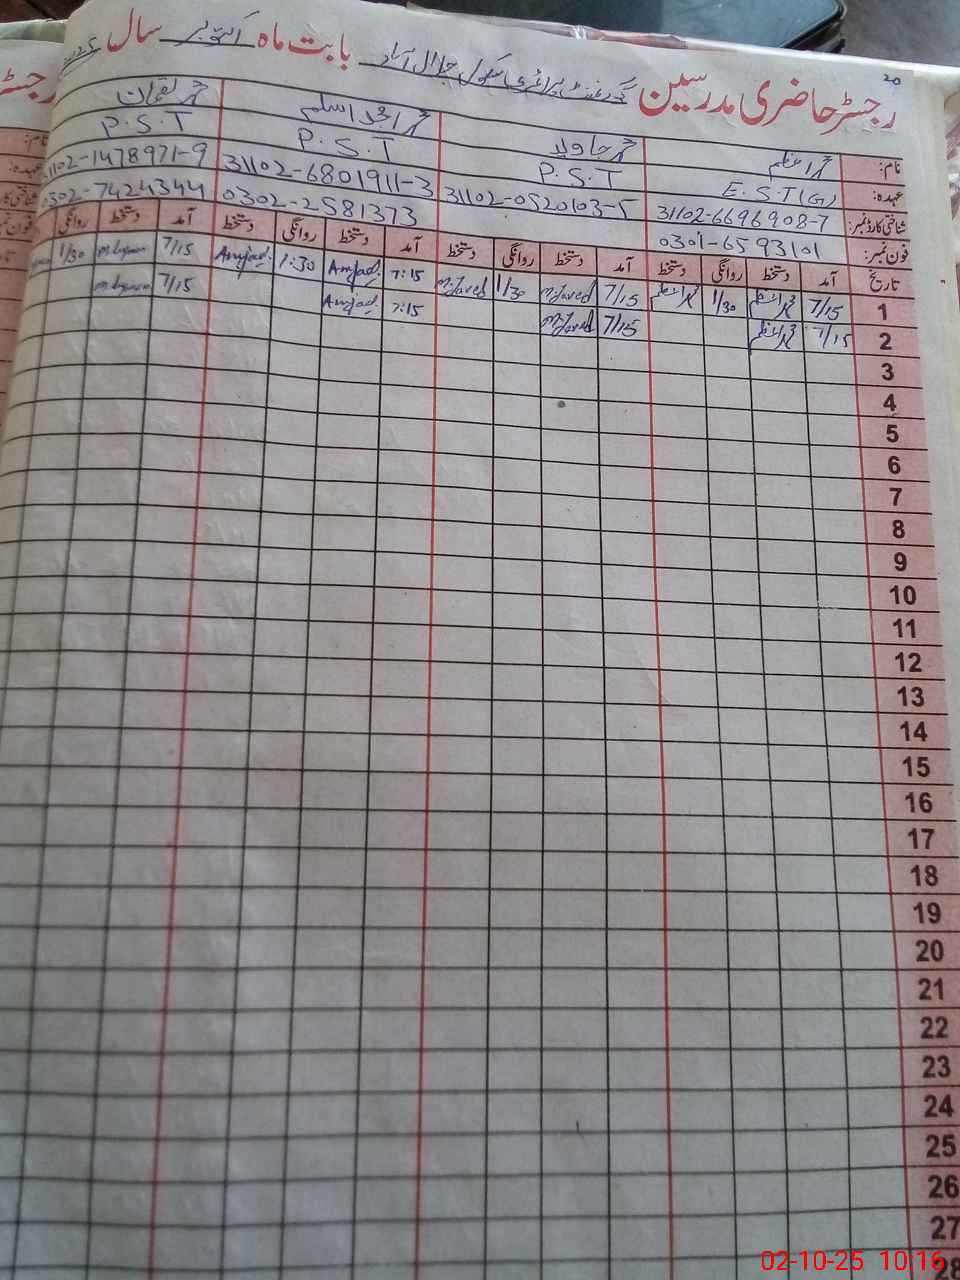 رجسٹر حاضری مدرسین گورنمنٹ پرائمری سکول جلال آباد بابت ماہ اکتوبر سال
20
نام: محمد اعظم محمد جاوید محمد امجد اسلم محمد لقمان
عہدہ: E.S.T(G) P.S.T P.S.T P.S.T
شناختی کارڈ نمبر: 31102-6696908-7 31102-0520103-5 31102-6801911-3 31102-1478971-9
فون نمبر: 0301-6593101 0302-2581373 0302-7424344
تاریخ آمد دستخط روانگی دستخط آمد دستخط روانگی دستخط آمد دستخط روانگی دستخط آمد دستخط روانگی
1 7/15 محمد اعظم 1/30 محمد اعظم 7/15 M.Javed 1/30 M.Javed 7:15 Amjad 1:30 Amjad 7/15 M.Luqman 1/30
2 7/15 محمد اعظم 7/15 M.Javed 7:15 Amjad 7/15 M.Luqman
3
4
5
6
7
8
9
10
11
12
13
14
15
16
17
18
19
20
21
22
23
24
25
26
27
28
02-10-25 10:16